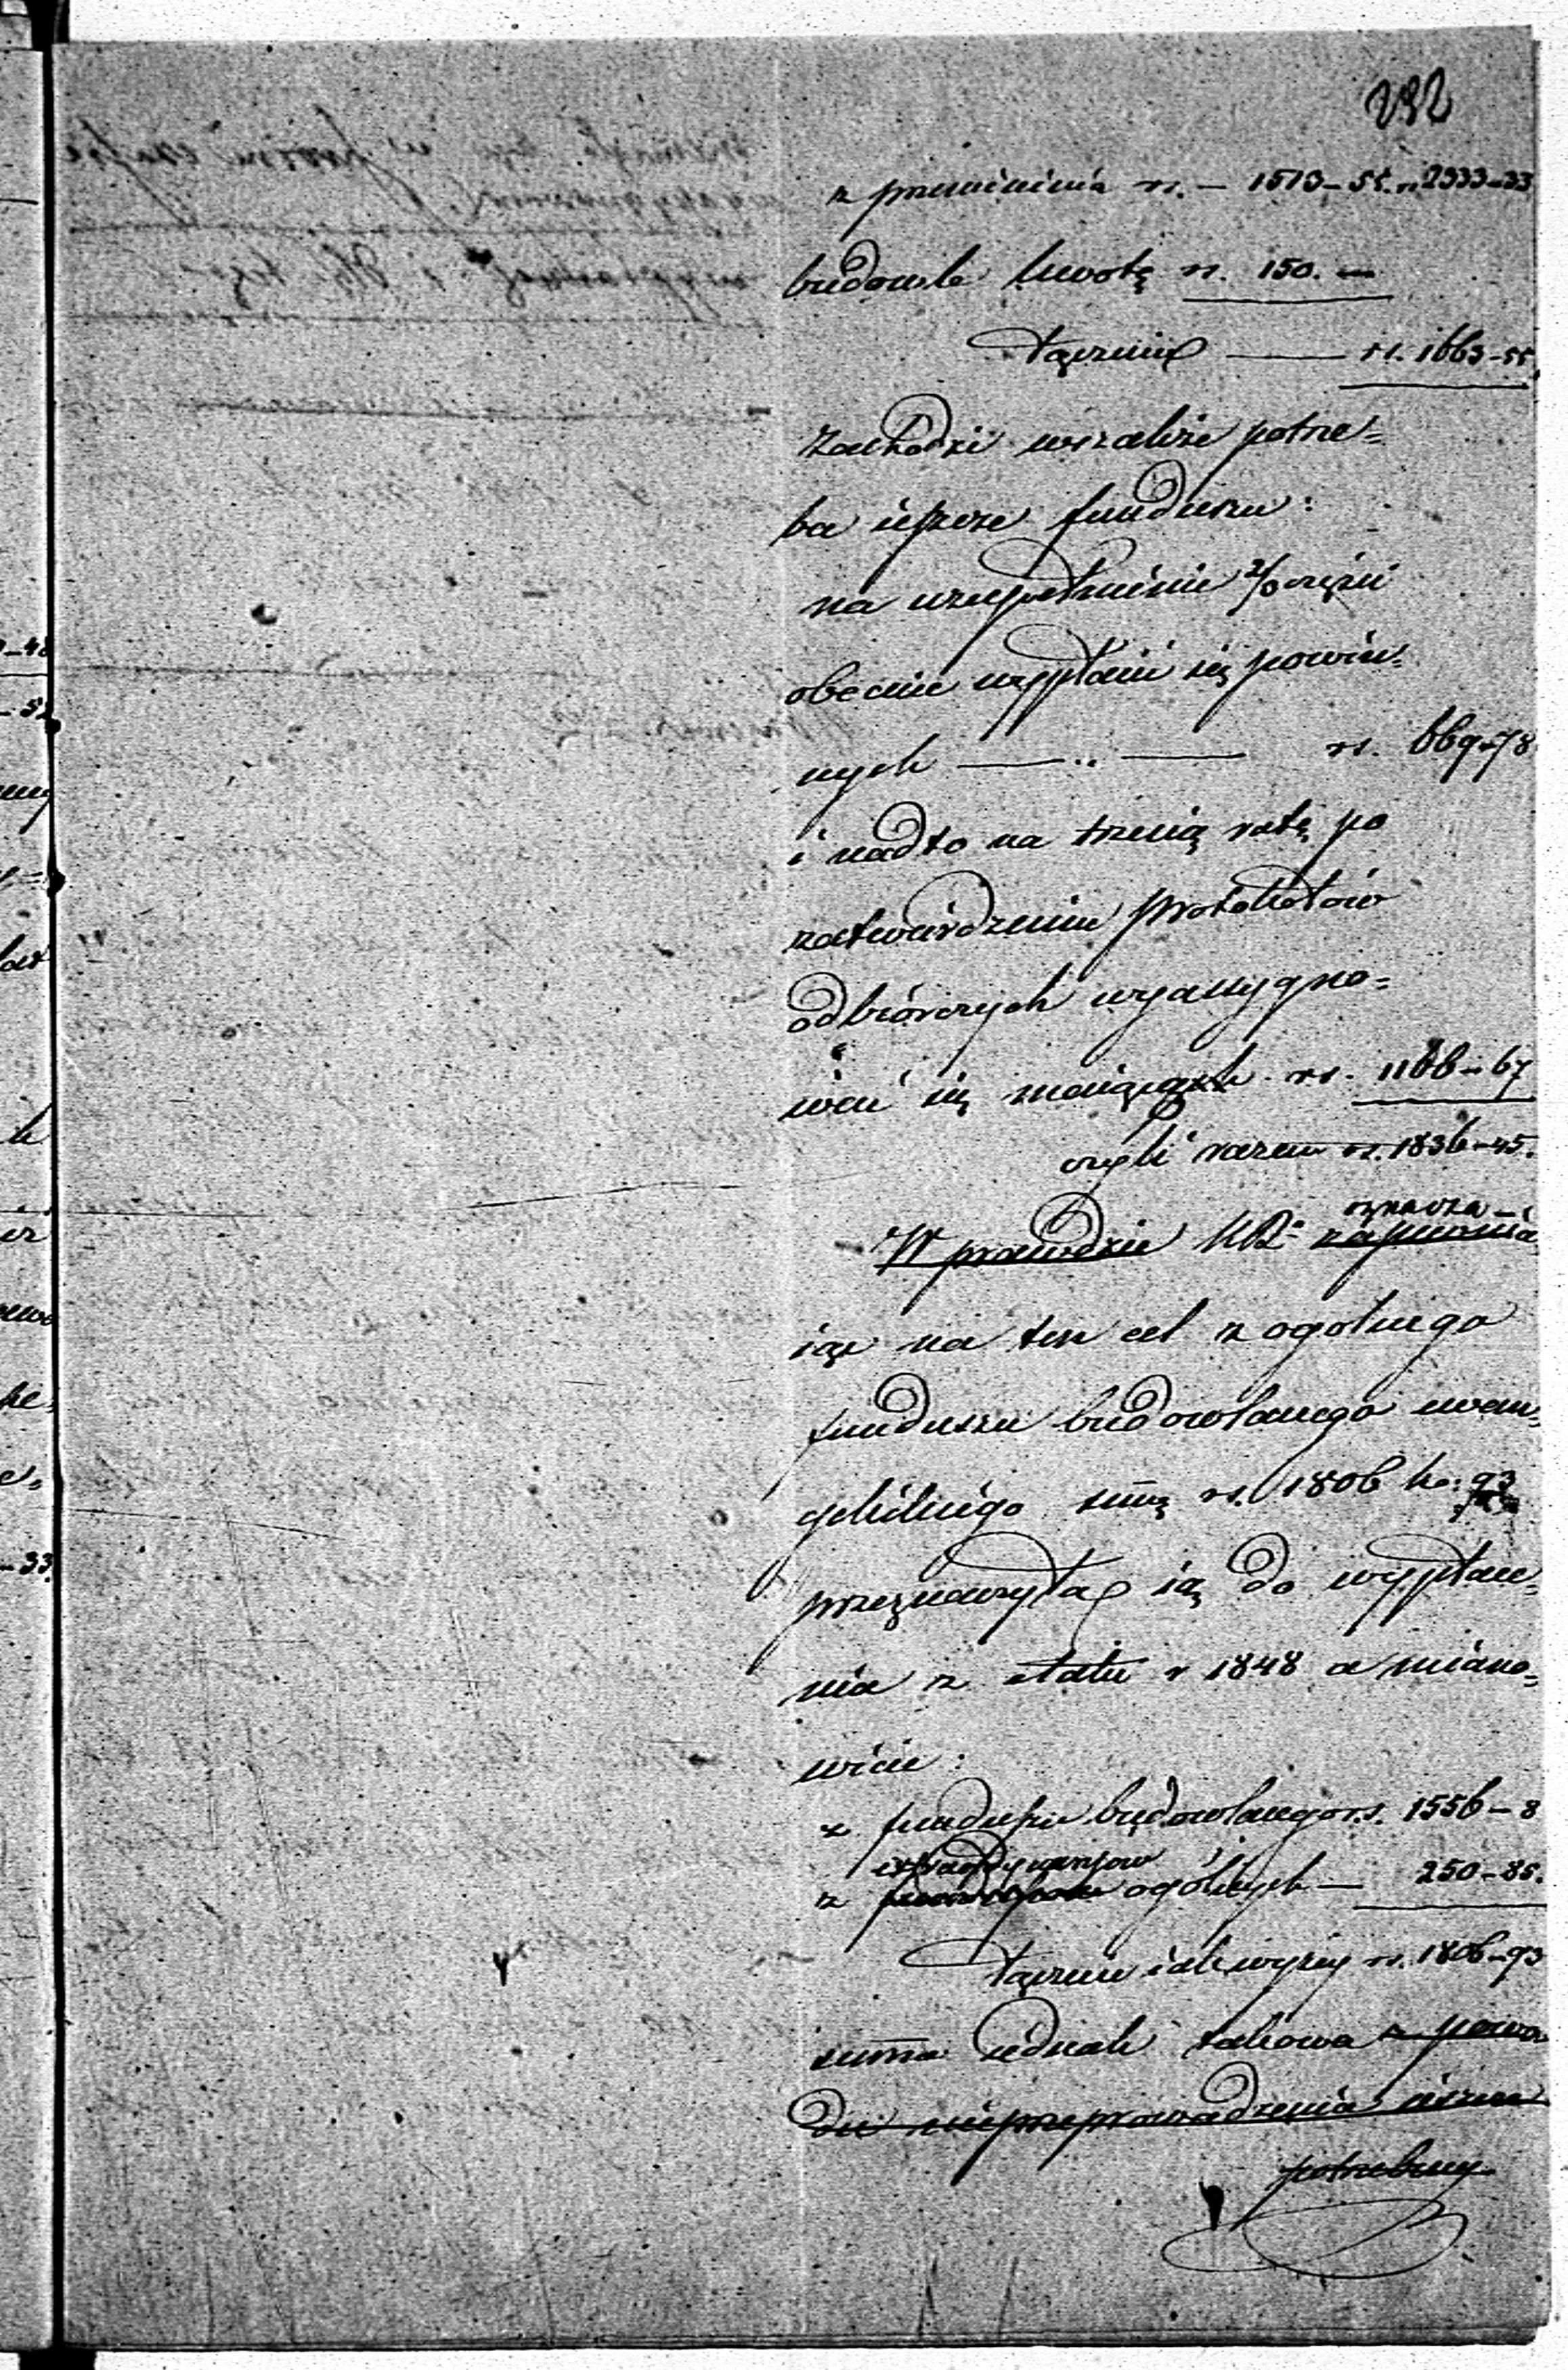 292
z przeniesienia rs. – 1513–55. rs. 2333–33
budowle kwotę rs. 150. —
łącznie —— rs. 1663–55.
Zachodzi wszakże potrze=
ba jeszcze funduszu:
na uzupełnienie 2/3 części
obecnie wypłacić się powin=
nych —— „ —— rs. 669–78
i nadto na trzecią ratę po
zatwierdzeniu protokołów
odbiorczych wyassygno=
wać się mających rs. 1166–67
czyli razem rs. 1836–45.
oznacza–
W prawdzie KR. zapewnia
jąc na ten cel z ogólnego
funduszu budowlanego ewan=
gelickiego summę rs. 1806 k. 93
przeznaczyła ią do wypłace=
nia z etatu r 1848 a miano=
wicie:
z funduszu budowlanego rs. 1556–8
extraordynariów
z ogólnych — 250–85.
łącznie jak wyżej rs. 1806–93
summa jednak takowa z powo
du nieprzeprowadzenia
potrzebny